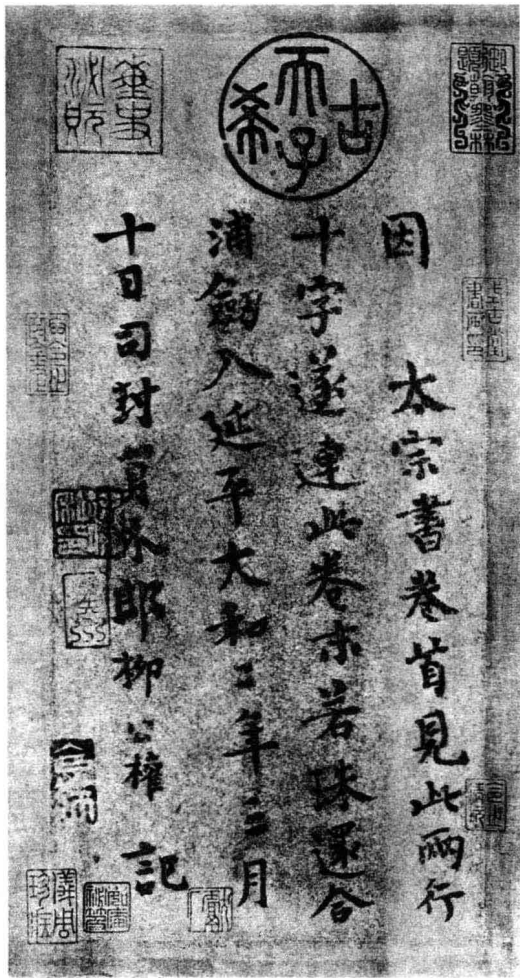 古希天子
因 太宗書卷首見此兩行
十字遂連此卷末若珠還合
浦劒入延平大和二年三月
十日司封員外郎柳公權記
儀周珍藏